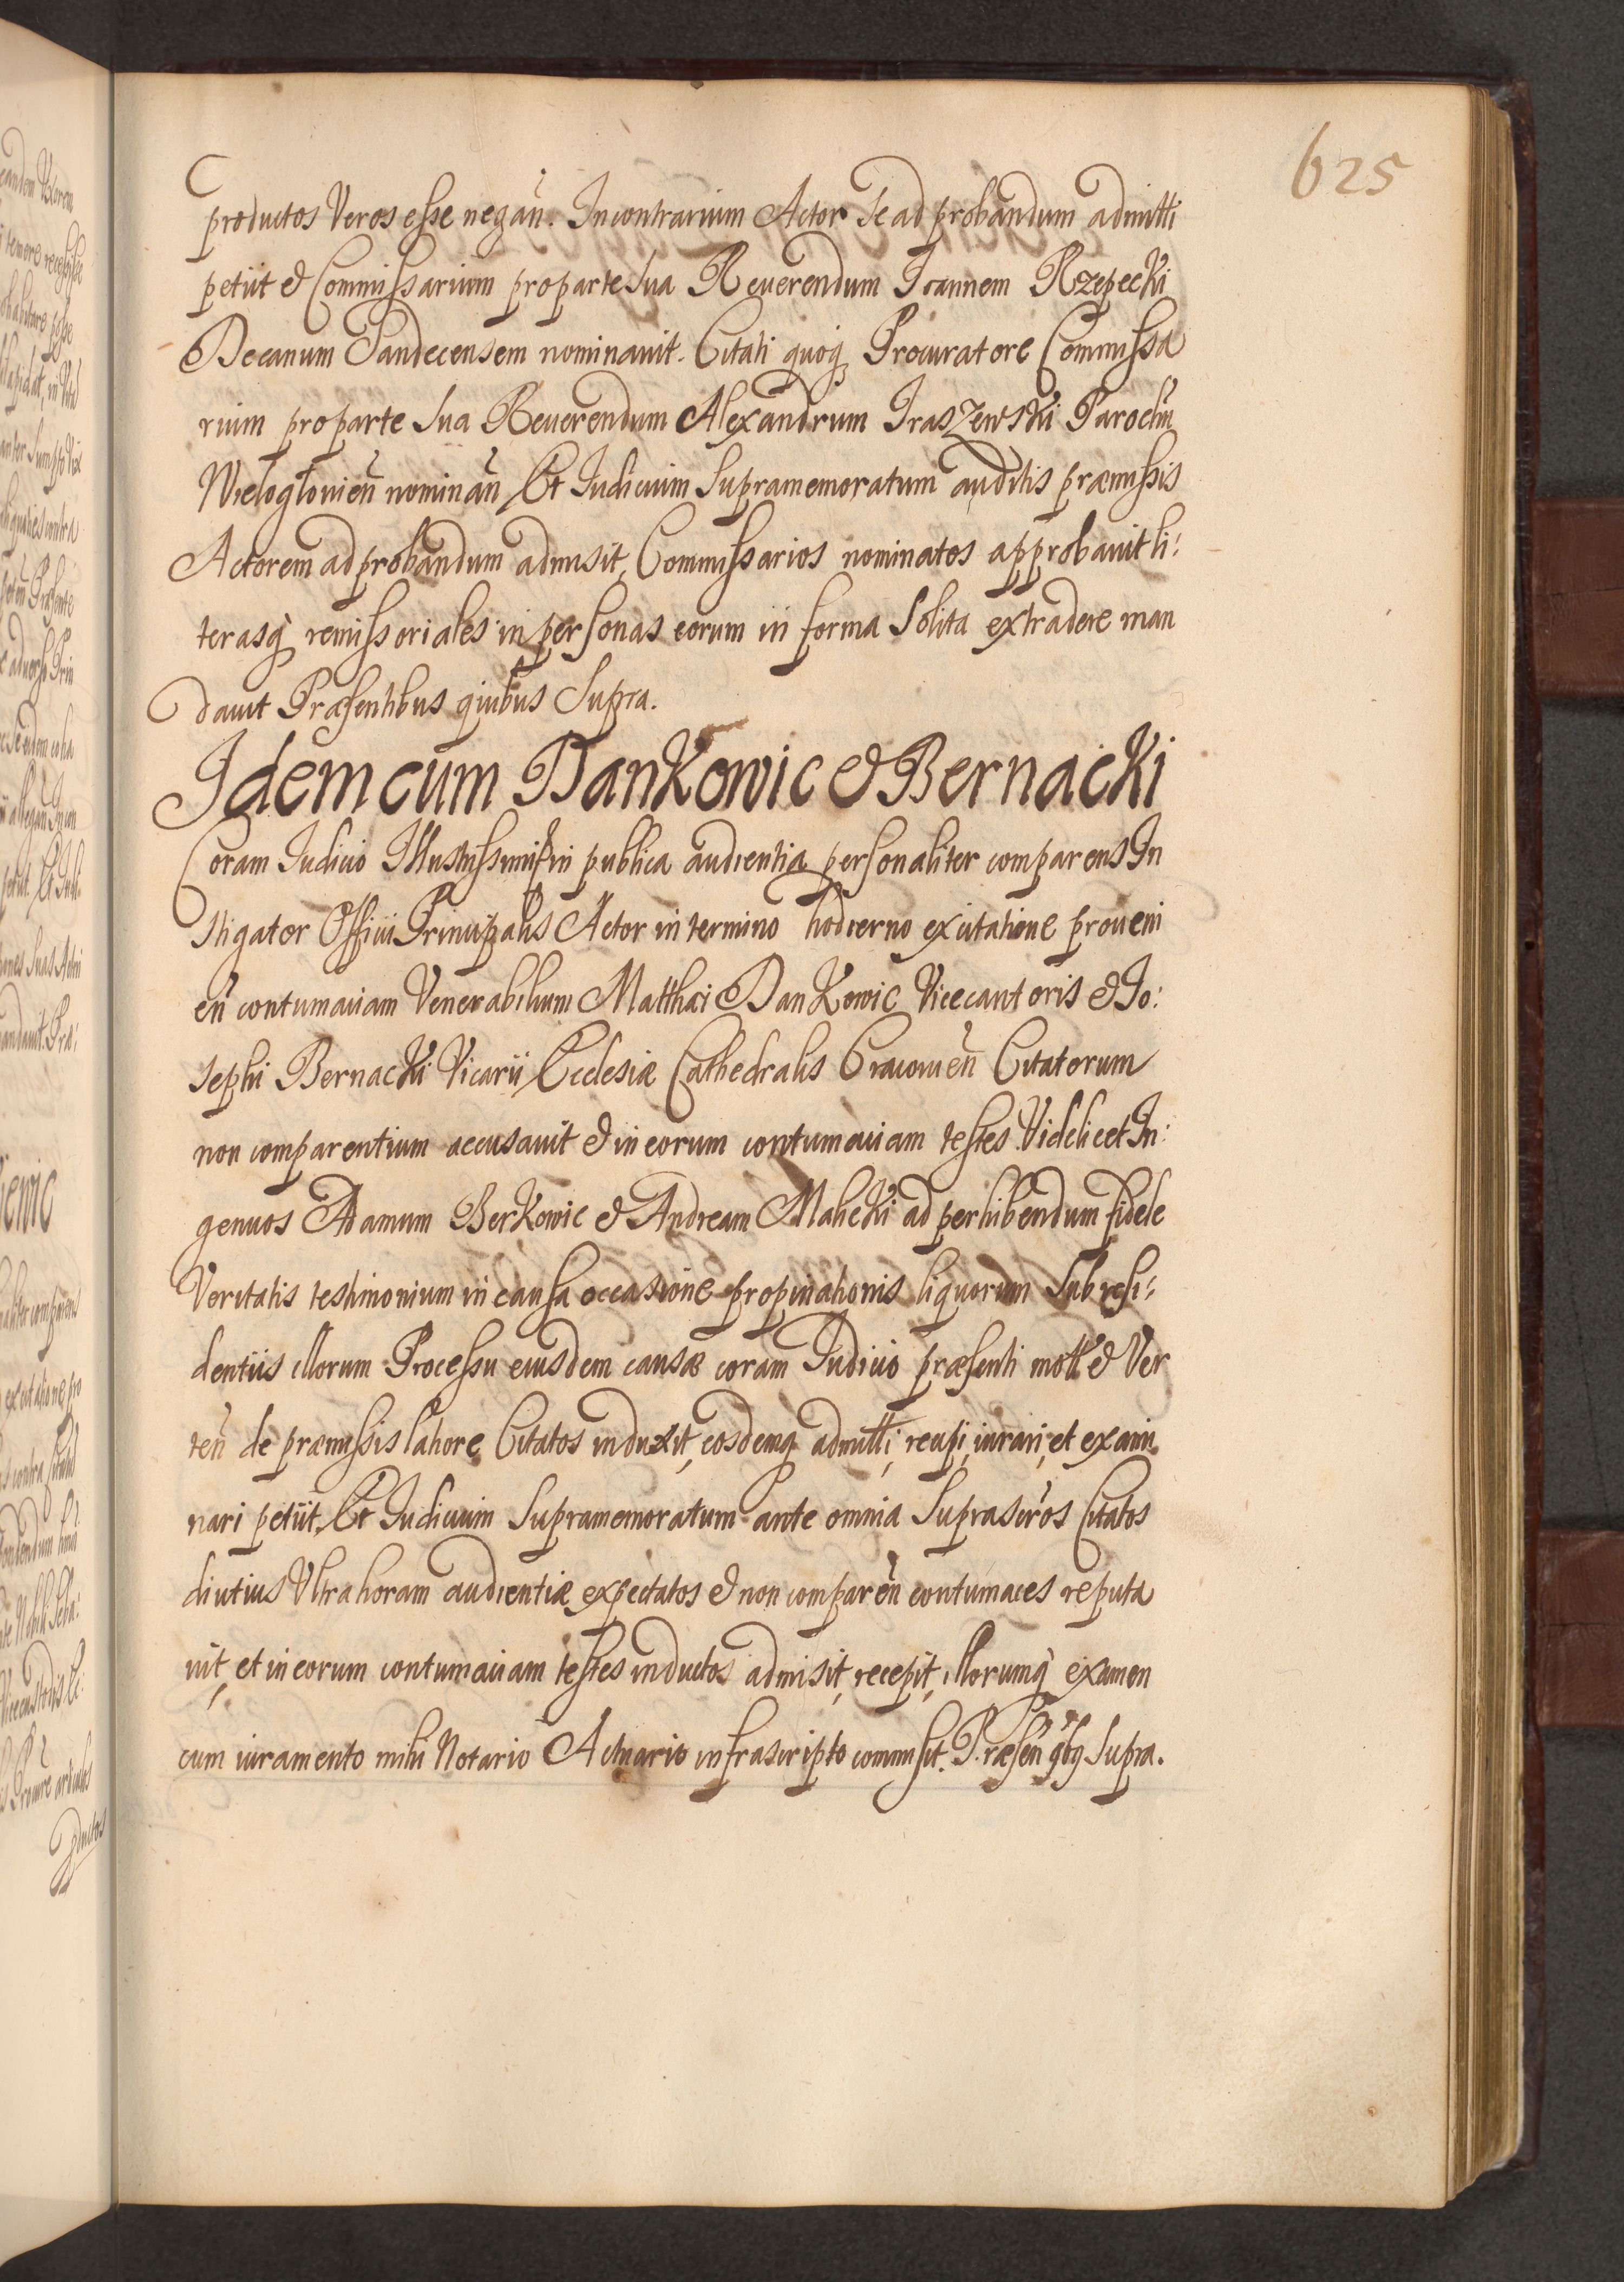 625
productos Veros esse negan̄. In contrarium Actor se ad probandum admitti
petiit & Commissarium pro parte sua Reuerendum Ioannem Rzepecki
Decanum Sandecensem nominauit. Citati quoq; Procuratore Commissa
rium pro parte sua Reuerendum Alexandrum Iraszewski Parochū
Wieloglouien̄ nominan̄ Et Iudicium Supramemoratum auditis præmissis
Actorem ad probandum admisit, Commissarios nominatos approbauit li:
terasq; remissoriales in personas eorum in forma Solita extradere man
dauit Præsentibus quibus Supra.
Idem cum Dankowic & Bernacki
Coram Iudicio Illustrissimi in publica audientia personaliter comparens In
stigator Officii Principalis Actor in termino hodierno ex citatione proueni
en̄ contumaciam Venerabilium Matthæi Dankowic Vicecantoris & Io:
sephi Bernacki Vicarii Ecclesiæ Cathedralis Cracouien̄ Citatorum
non comparentium accusauit & in eorum contumaciam testes Videlicet In:
genuos Adamum Berkowic & Andream Malicki ad perhibendum fidele
Veritatis testimonium in causa occasione propinationis liquorum Sub resi:
dentiis illorum Processu eiusdem causæ coram Iudicio præsenti mott & Ver
ten̄ de præmissis latiore Citatos induxit, eosdemq; admitti, recipi, iurari, et exami
nari petiit, Et Iudicium Supramemoratum ante omnia Suprascr̄os Citatos
diutius Vltra horam audientiæ expectatos & non comparen̄ contumaces reputa
uit, et in eorum contumaciam testes inductos admisit, recepit, illorumq; examen
cum iuramento mihi Notario Actuario infrascripto commisit. Præsen̄ qbq Supra.